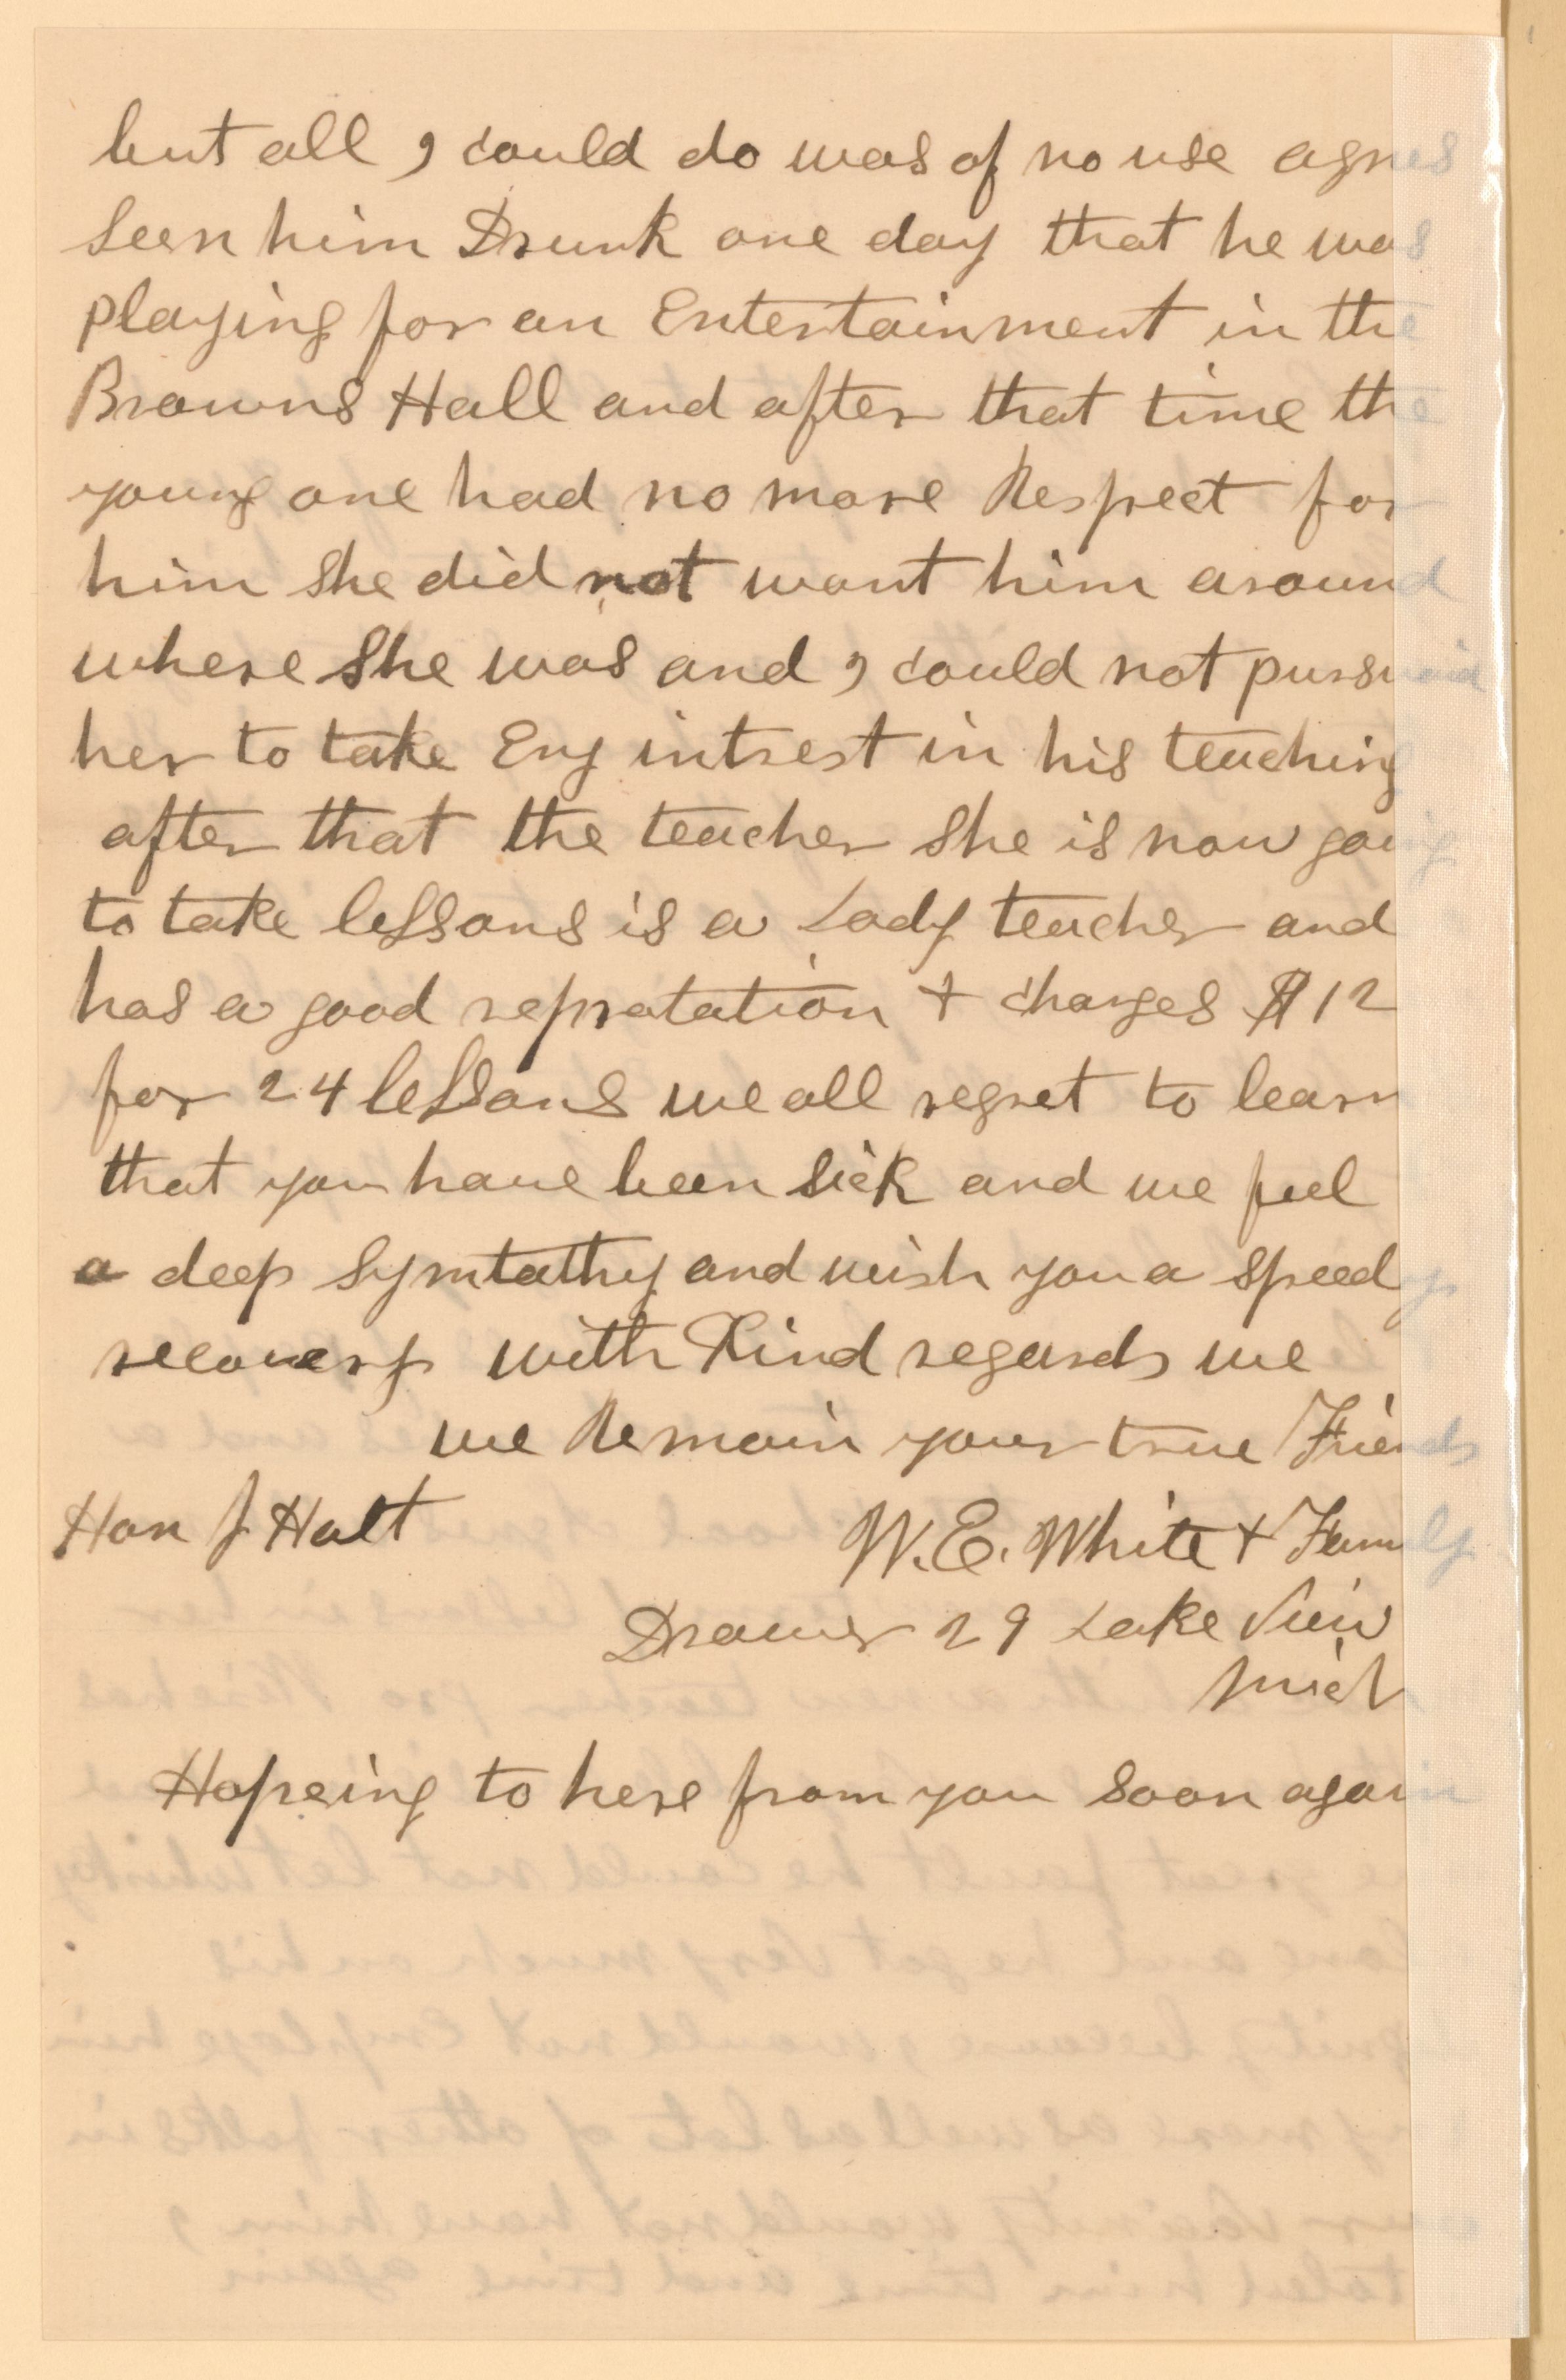 but all I could do was of no use agnes
seen him Drunk one day that he was
playing for an Entertainment in the
Browns Hall and after that time the
young one had no more Respect for
him she did not want him around
where she was and I could not pursuaid
her to take Eny intrest in his teaching
after that the teacher she is now going
to take lessons is a Lady teacher and
has a good repratation + charges $12
for 24 lessons we all regret to learn
that you have been sick and we feel
a deep symtathy and wish you a speedy
recovery with Kind regards we
we Remain your true Friends
Hon J Holt W.E. White + Family
Drawer 29 Lake View
Mich
Hopeing to here from you soon again